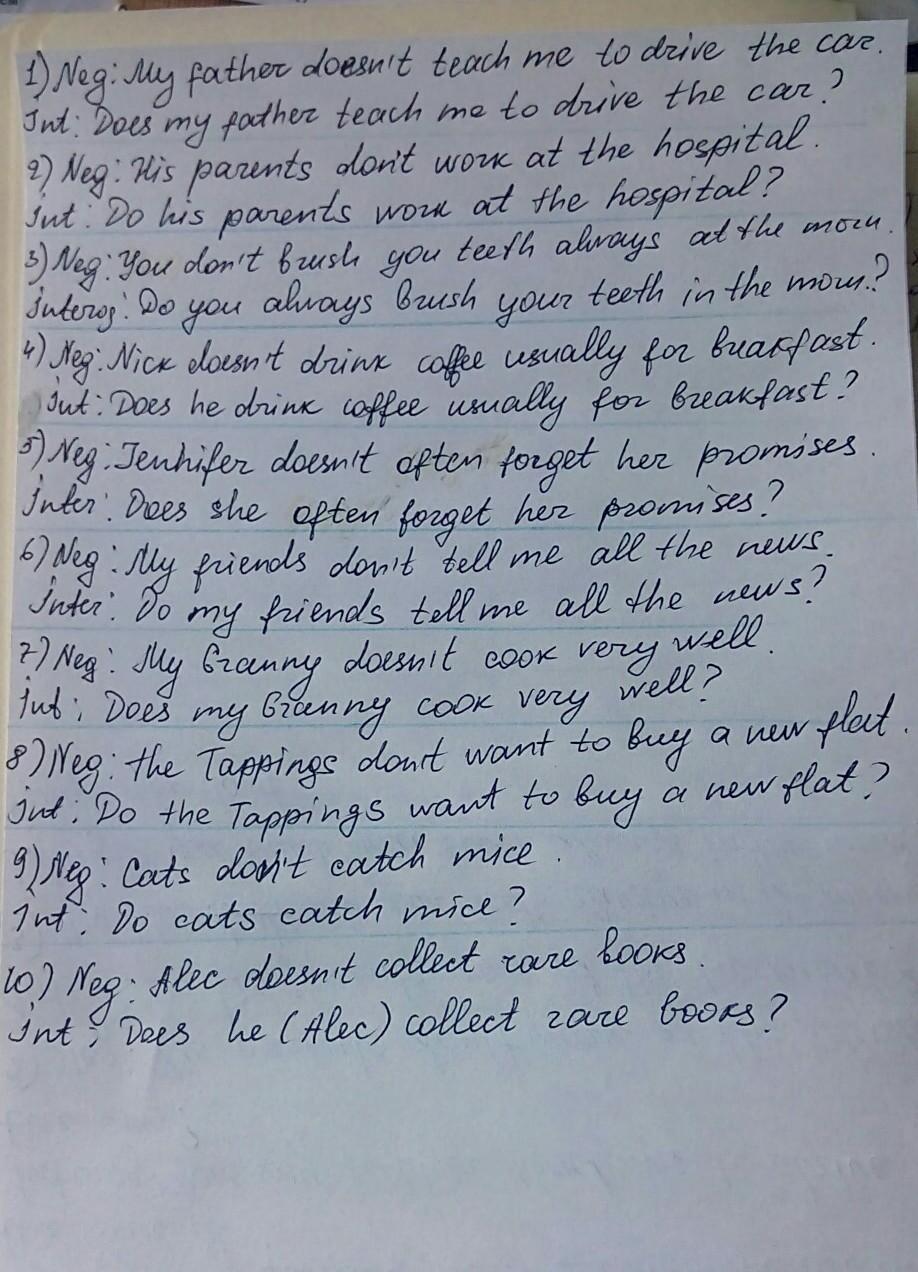 1) Neg: My father doesn't teach me to drive the car.
Int: Does my father teach me to drive the car?
2) Neg: His parents don't work at the hospital.
Int: Do his parents work at the hospital?
3) Neg: You don't brush you teeth always at the morn.
Interog: Do you always brush your teeth in the morn.?
4) Neg: Nick doesn't drink coffee usually for breakfast.
Int: Does he drink coffee usually for breakfast?
5) Neg: Jennifer doesn't often forget her promises.
Inter: Does she often forget her promises?
6) Neg: My friends don't tell me all the news.
Inter: Do my friends tell me all the news?
7) Neg: My Granny doesn't cook very well.
Int: Does my Granny cook very well?
8) Neg: the Tappings don't want to buy a new flat.
Int: Do the Tappings want to buy a new flat?
9) Neg: Cats don't catch mice.
Int: Do cats catch mice?
10) Neg: Alec doesn't collect rare books.
Int: Does he (Alec) collect rare books?